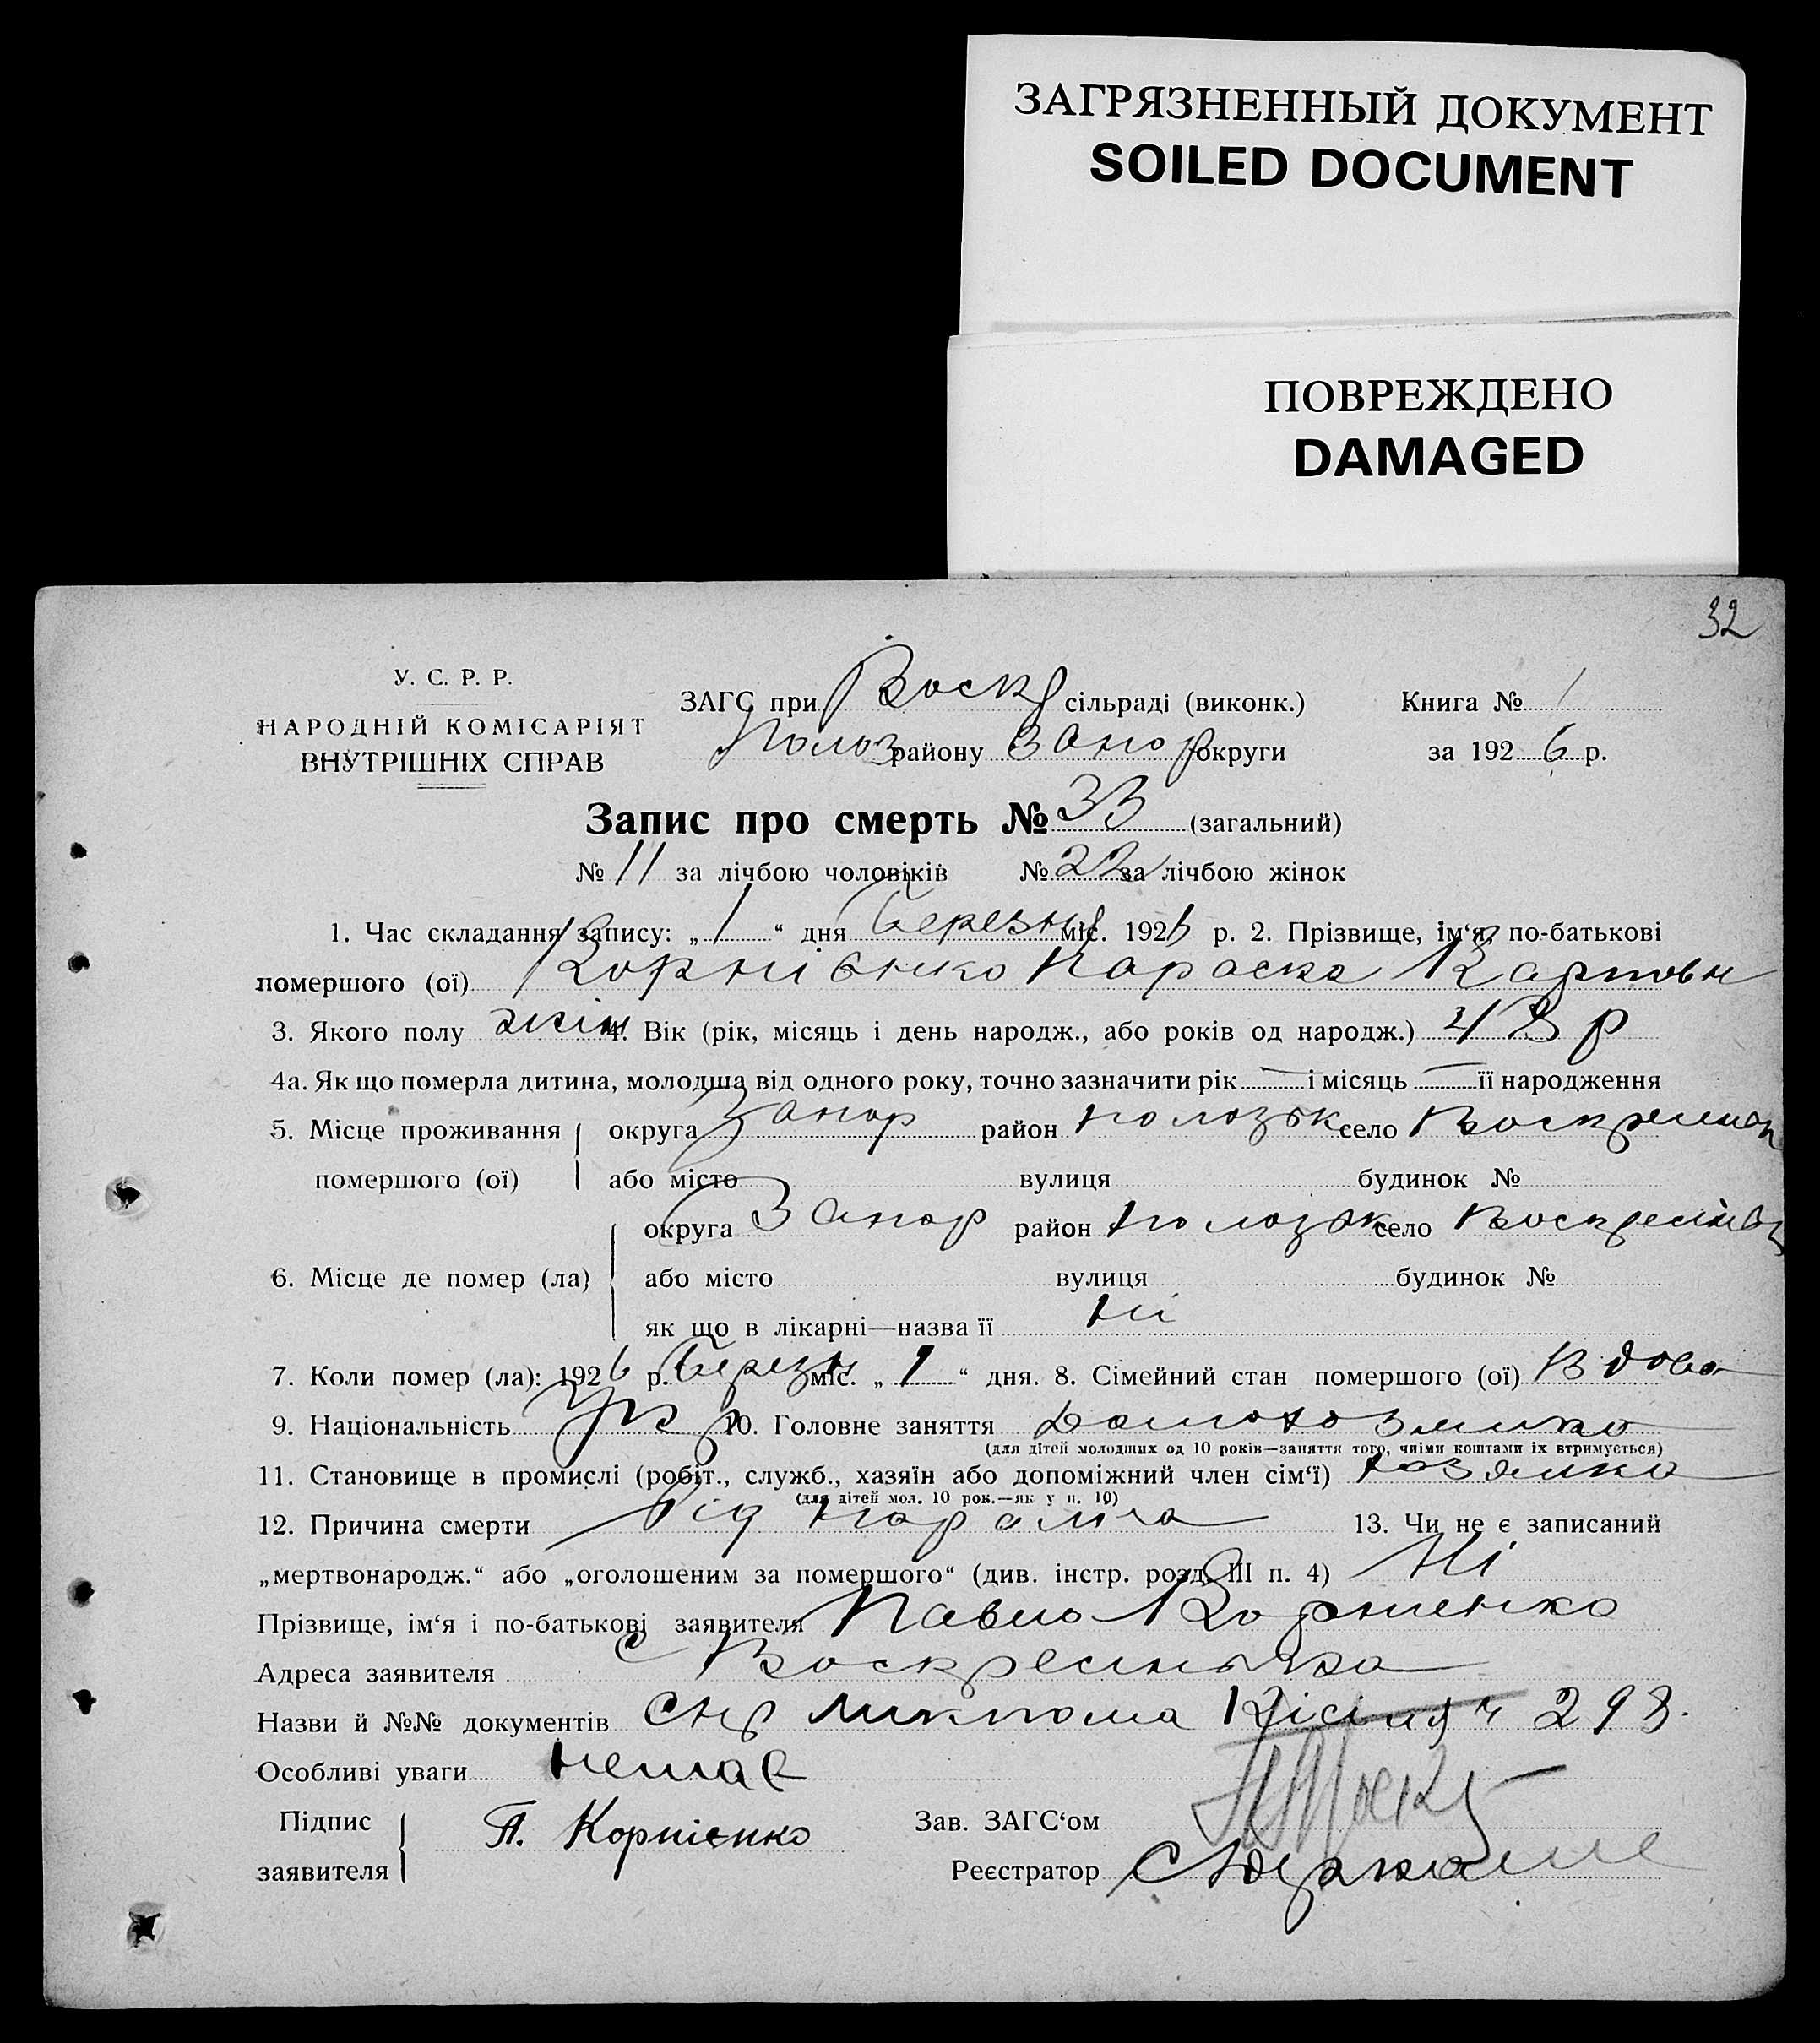 ЗАГРЯЗНЕННЫЙ ДОКУМЕНТ
SOILED DOCUMENT
ПОВРЕЖДЕНО
DAMAGED
32
У. С. Р. Р.
НАРОДНІЙ КОМІСАРІЯТ
ВНУТРІШНІХ СПРАВ
ЗАГС при Воскр сільраді (виконк.) Книга № 1
Полоз району Запор округи за 1926 р.
Запис про смерть № 33 (загальний)
№ 11 за лічбою чоловіків № 22 за лічбою жінок
1. Час складання запису: „ 1 “ дня Березня міс. 1926 р. 2. Прізвище, ім‘я, по-батькові
помершого (ої) Корнієнко Параска Карповн
3. Якого полу жін 4. Вік (рік, місяць і день народж., або років од народж.) 43 р
4а. Як що померла дитина, молодша від одного року, точно зазначити рік — і місяць — її народження
5. Місце проживання помершого (ої) округа Запор район Полозьк село
або місто вулиця будинок №
6. Місце де помер (ла) округа Запор район Полозьк село
або місто вулиця будинок №
як що в лікарні—назва її ні
7. Коли помер (ла): 1926 р. Березн міс. „ 1 “ дня. 8. Сімейний стан помершого (ої) Вдова
9. Національність Укр 10. Головне заняття
(для дітей молодших од 10 років—заняття того, чиїми коштами їх втримується)
11. Становище в промислі (робіт., служб., хазяїн або допоміжний член сім‘ї) хозяйка
(для дітей мол. 10 рок.—як у п. 10)
12. Причина смерти Від 13. Чи не є записаний
„мертвонародж.“ або „оголошеним за помершого“ (див. інстр. розд. III п. 4) Ні
Прізвище, ім‘я і по-батькові заявителя Павло Корниенко
Адреса заявителя с Воскресинька
Назви й №№ документів 293.
Особливі уваги немає
Підпис заявителя П. Корнієнко Зав. ЗАГС‘ом
Реєстратор